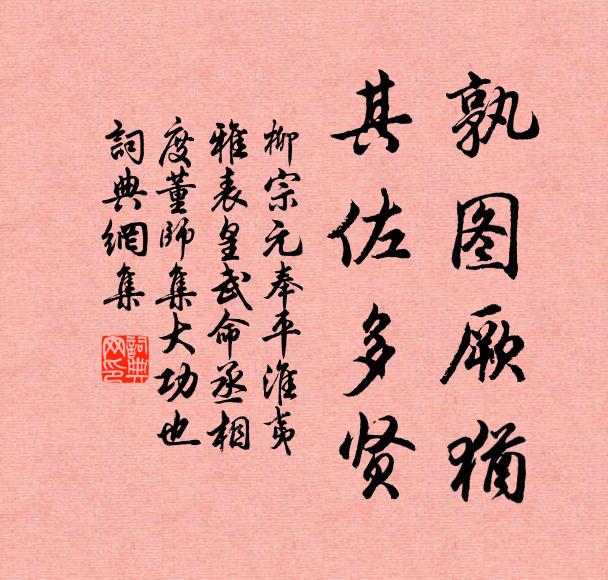 孰图厥猶
其佐多贤
柳宗元奉平淮夷
雅表皇武命丞相
度董師集大功也
詞典網集
詞典網印